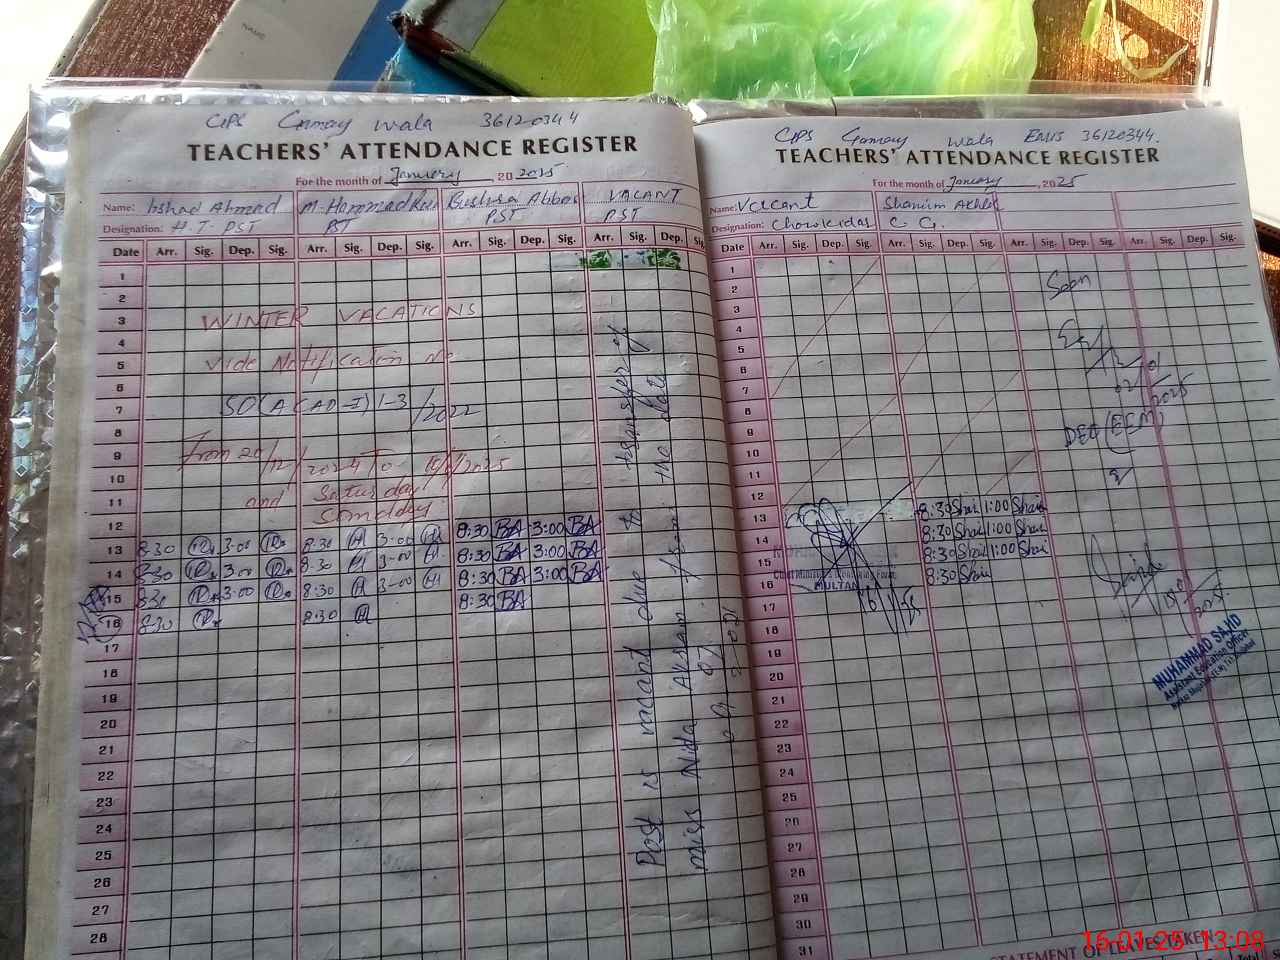 GPS Gamay Wala 36120344
TEACHERS' ATTENDANCE REGISTER
For the month of January, 2025
Name: Irshad Ahmad M-Hammad Bushra Abbas VACANT
Designation: H.T. PST PST PST PST
Date Arr. Sig. Dep. Sig. Arr. Sig. Dep. Sig. Arr. Sig. Dep. Sig. Arr. Sig. Dep. Sig.
1
2
3 WINTER VACATIONS
4
5 Vide Notification No
6
7 SO(ACAD-I)1-3/2022
8
9 From 20/12/2024 To
10 Saturday
11 and
12 8:30 BA 3:00 BA
13 8:30 3:00 8:30 H 3:00 H 8:30 BA 3:00 BA
14 8:30 3:00 8:30 H 3:00 H 8:30 BA 3:00 BA
15 8:30 3:00 8:30 H 3:00 H 8:30 BA
16 8:30 8:30 H
17
18
19
20
21
22
23
24
25
26
27
28
Post is vacant due to transfer of
miss Nida Akram from the date
GPS Gamay Wala EMIS 36120344.
TEACHERS' ATTENDANCE REGISTER
For the month of January, 2025
Name: Vacant Shamim Akhtar
Designation: Chowkidar C.G.
Date Arr. Sig. Dep. Sig. Arr. Sig. Dep. Sig. Arr. Sig. Dep. Sig. Arr. Sig. Dep. Sig.
1
2 Seen
3
4
5
6
7
8
9 DEO (EEM)
10
11
12
13 8:30 Sha 1:00 Sha
14 8:30 Sha 1:00 Sha
15 8:30 Sha 1:00 Sha
16 8:30 Sha
MULTAN
17
18
19
20
21
22
23
24
25
26
27
28
29
30
31
MUHAMMAD SAJID
Assistant Education Officer
STATEMENT OF LEAVES TAKEN
16-01-25 13:08